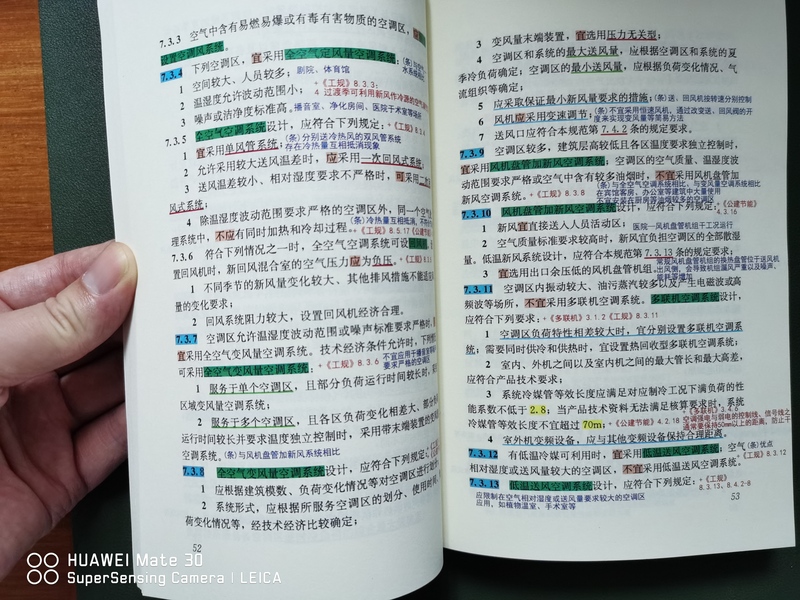 7.3.3 空气中含有易燃易爆或有毒有害物质的空调区,
设置直流风系统。
7.3.4 下列空调区,宜采用全空气定风量空调系统:
1 空间较大、人员较多;剧院、体育馆
2 温湿度允许波动范围小;+《工规》8.3.3:
4 过渡季可利用新风作冷源的空气
3 噪声或洁净度标准高。播音室、净化房间、医院手术室等场所
7.3.5 全空气空调系统设计,应符合下列规定:+《工规》8.3.4
1 宜采用单风管系统;(条)分别送冷热风的双风管系统
存在冷热量互相抵消现象
2 允许采用较大送风温差时,应采用一次回风式系统;
3 送风温差较小、相对湿度要求不严格时,可采用二次
风式系统;
4 除温湿度波动范围要求严格的空调区外,同一个空气
理系统中,不应有同时加热和冷却过程。+《工规》8.5.17《公建节能》
7.3.6 符合下列情况之一时,全空气空调系统可设回风机。
置回风机时,新回风混合室的空气压力应为负压。+《工规》
1 不同季节的新风量变化较大、其他排风措施不能适应
量的变化要求;
2 回风系统阻力较大,设置回风机经济合理。
7.3.7 空调区允许温湿度波动范围或噪声标准要求严格时,
宜采用全空气变风量空调系统。技术经济条件允许时,下列情
可采用全空气变风量空调系统:+《工规》8.3.6 不宜应用于播音室等
要求严格的空调区
1 服务于单个空调区,且部分负荷运行时间较长时,
区域变风量空调系统;
2 服务于多个空调区,且各区负荷变化相差大、部分负
运行时间较长并要求温度独立控制时,采用带末端装置的变
空调系统。(条)与风机盘管加新风系统相比
7.3.8 全空气变风量空调系统设计,应符合下列规定:
1 应根据建筑模数、负荷变化情况等对空调区进行划分;
2 系统形式,应根据所服务空调区的划分、使用时间、
荷变化情况等,经技术经济比较确定;
52
3 变风量末端装置,宜选用压力无关型;
4 空调区和系统的最大送风量,应根据空调区和系统的夏
季冷负荷确定;空调区的最小送风量,应根据负荷变化情况、气
流组织等确定;
5 应采取保证最小新风量要求的措施;(条)送、回风机按转速分别控制
6 风机应采用变速调节;(条)不宜采用恒速风机,通过改变送、回风阀的开
度来实现变风量等简易方法
7 送风口应符合本规范第7.4.2条的规定要求。
7.3.9 空调区较多,建筑层高较低且各区温度要求独立控制时,
宜采用风机盘管加新风空调系统;空调区的空气质量、温湿度波
动范围要求严格或空气中含有较多油烟时,不宜采用风机盘管加
新风空调系统。+《工规》8.3.8 (条)与全空气空调系统相比、与变风量空调系统相比
在宾馆客房、办公室等建筑中大量使用
不宜安装在厨房等油烟较多的空调区
7.3.10 风机盘管加新风空调系统设计,应符合下列规定:+《公建节能》
4.3.16
1 新风宜直接送入人员活动区;医院一风机盘管机组干工况运行
2 空气质量标准要求较高时,新风宜负担空调区的全部散湿
量。低温新风系统设计,应符合本规范第7.3.13条的规定要求。
3 宜选用出口余压低的风机盘管机组。常规风机盘管机组的换热盘管位于送风机
出风侧,会导致机组漏风严重以及噪声、
能耗等增加
7.3.11 空调区内振动较大、油污蒸汽较多以及产生电磁波或高
频波等场所,不宜采用多联机空调系统。多联机空调系统设计,
应符合下列要求:+《多联机》3.1.2《工规》8.3.11
1 空调区负荷特性相差较大时,宜分别设置多联机空调系
统;需要同时供冷和供热时,宜设置热回收型多联机空调系统;
2 室内、外机之间以及室内机之间的最大管长和最大高差,
应符合产品技术要求;
3 系统冷媒管等效长度应满足对应制冷工况下满负荷的性
能系数不低于2.8;当产品技术资料无法满足核算要求时,系统
冷媒管等效长度不宜超过70m;+《公建节能》4.2.18 《多联机》3.4.6
空调强电与弱电的控制线、信号线之
通常要保持50mm以上的距离,防止干
4 室外机变频设备,应与其他变频设备保持合理距离。
7.3.12 有低温冷媒可利用时,宜采用低温送风空调系统;空气(条)优点
相对湿度或送风量较大的空调区,不宜采用低温送风空调系统。+《工规》8.3.12
7.3.13 低温送风空调系统设计,应符合下列规定:+《工规》
8.3.13、8.4.2-8
应限制在空气相对湿度或送风量要求较大的空调区
应用,如植物温室、手术室等
53
HUAWEI Mate 30
SuperSensing Camera | LEICA